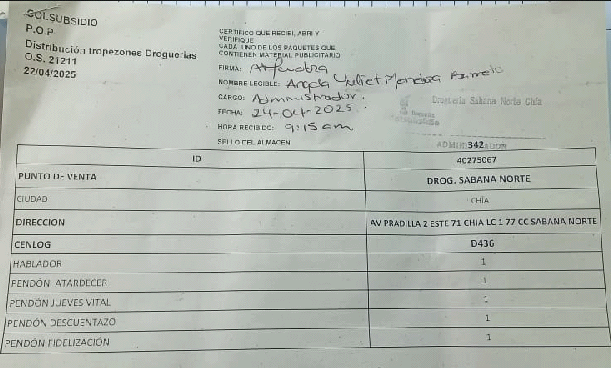 COLSUBSIDIO
P.O.P
Distribución Impezones Droguerías
O.S. 21211
22/04/2025
CERTIFICO QUE RECIBI, ABRI Y
VERIFIQUE
CADA UNO DE LOS PAQUETES QUE
CONTIENEN MATERIAL PUBLICITARIO
FIRMA:
NOMBRE LEGIBLE: Angela Yuliet Mendoza
CARGO: Administrador.
FECHA: 24-04-2025
HORA RECIBIDO: 9:15 am
SELLO DEL ALMACEN
Droguería Sabana Norte Chía
342
ID 4C275C67
PUNTO DE VENTA DROG. SABANA NORTE
CIUDAD CHÍA
DIRECCION AV PRADILLA 2 ESTE 71 CHIA LC 1 77 CC SABANA NORTE
CENLOG D436
HABLADOR 1
PENDÓN ATARDECER 1
PENDÓN JUEVES VITAL
PENDÓN DESCUENTAZO 1
PENDÓN FIDELIZACIÓN 1